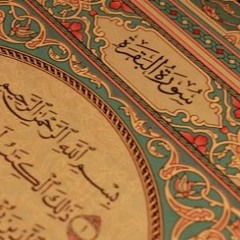 سُورَةُ الْبَقَرَةِ
بِسْمِ اللَّهِ الرَّحْمَٰنِ الرَّحِيمِ
ذَٰلِكَ الْكِتَٰبُ